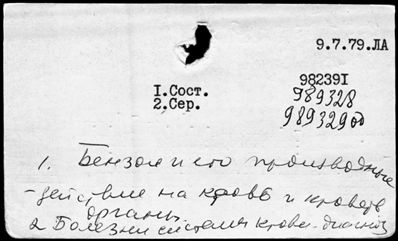 9.7.79.ЛА
1.Сост.
2.Сер.
982391
989328
989329об
1. Бензол и его производные
- действие на кровь и кроветв.
органы
2. Болезни системы крови - диагноз